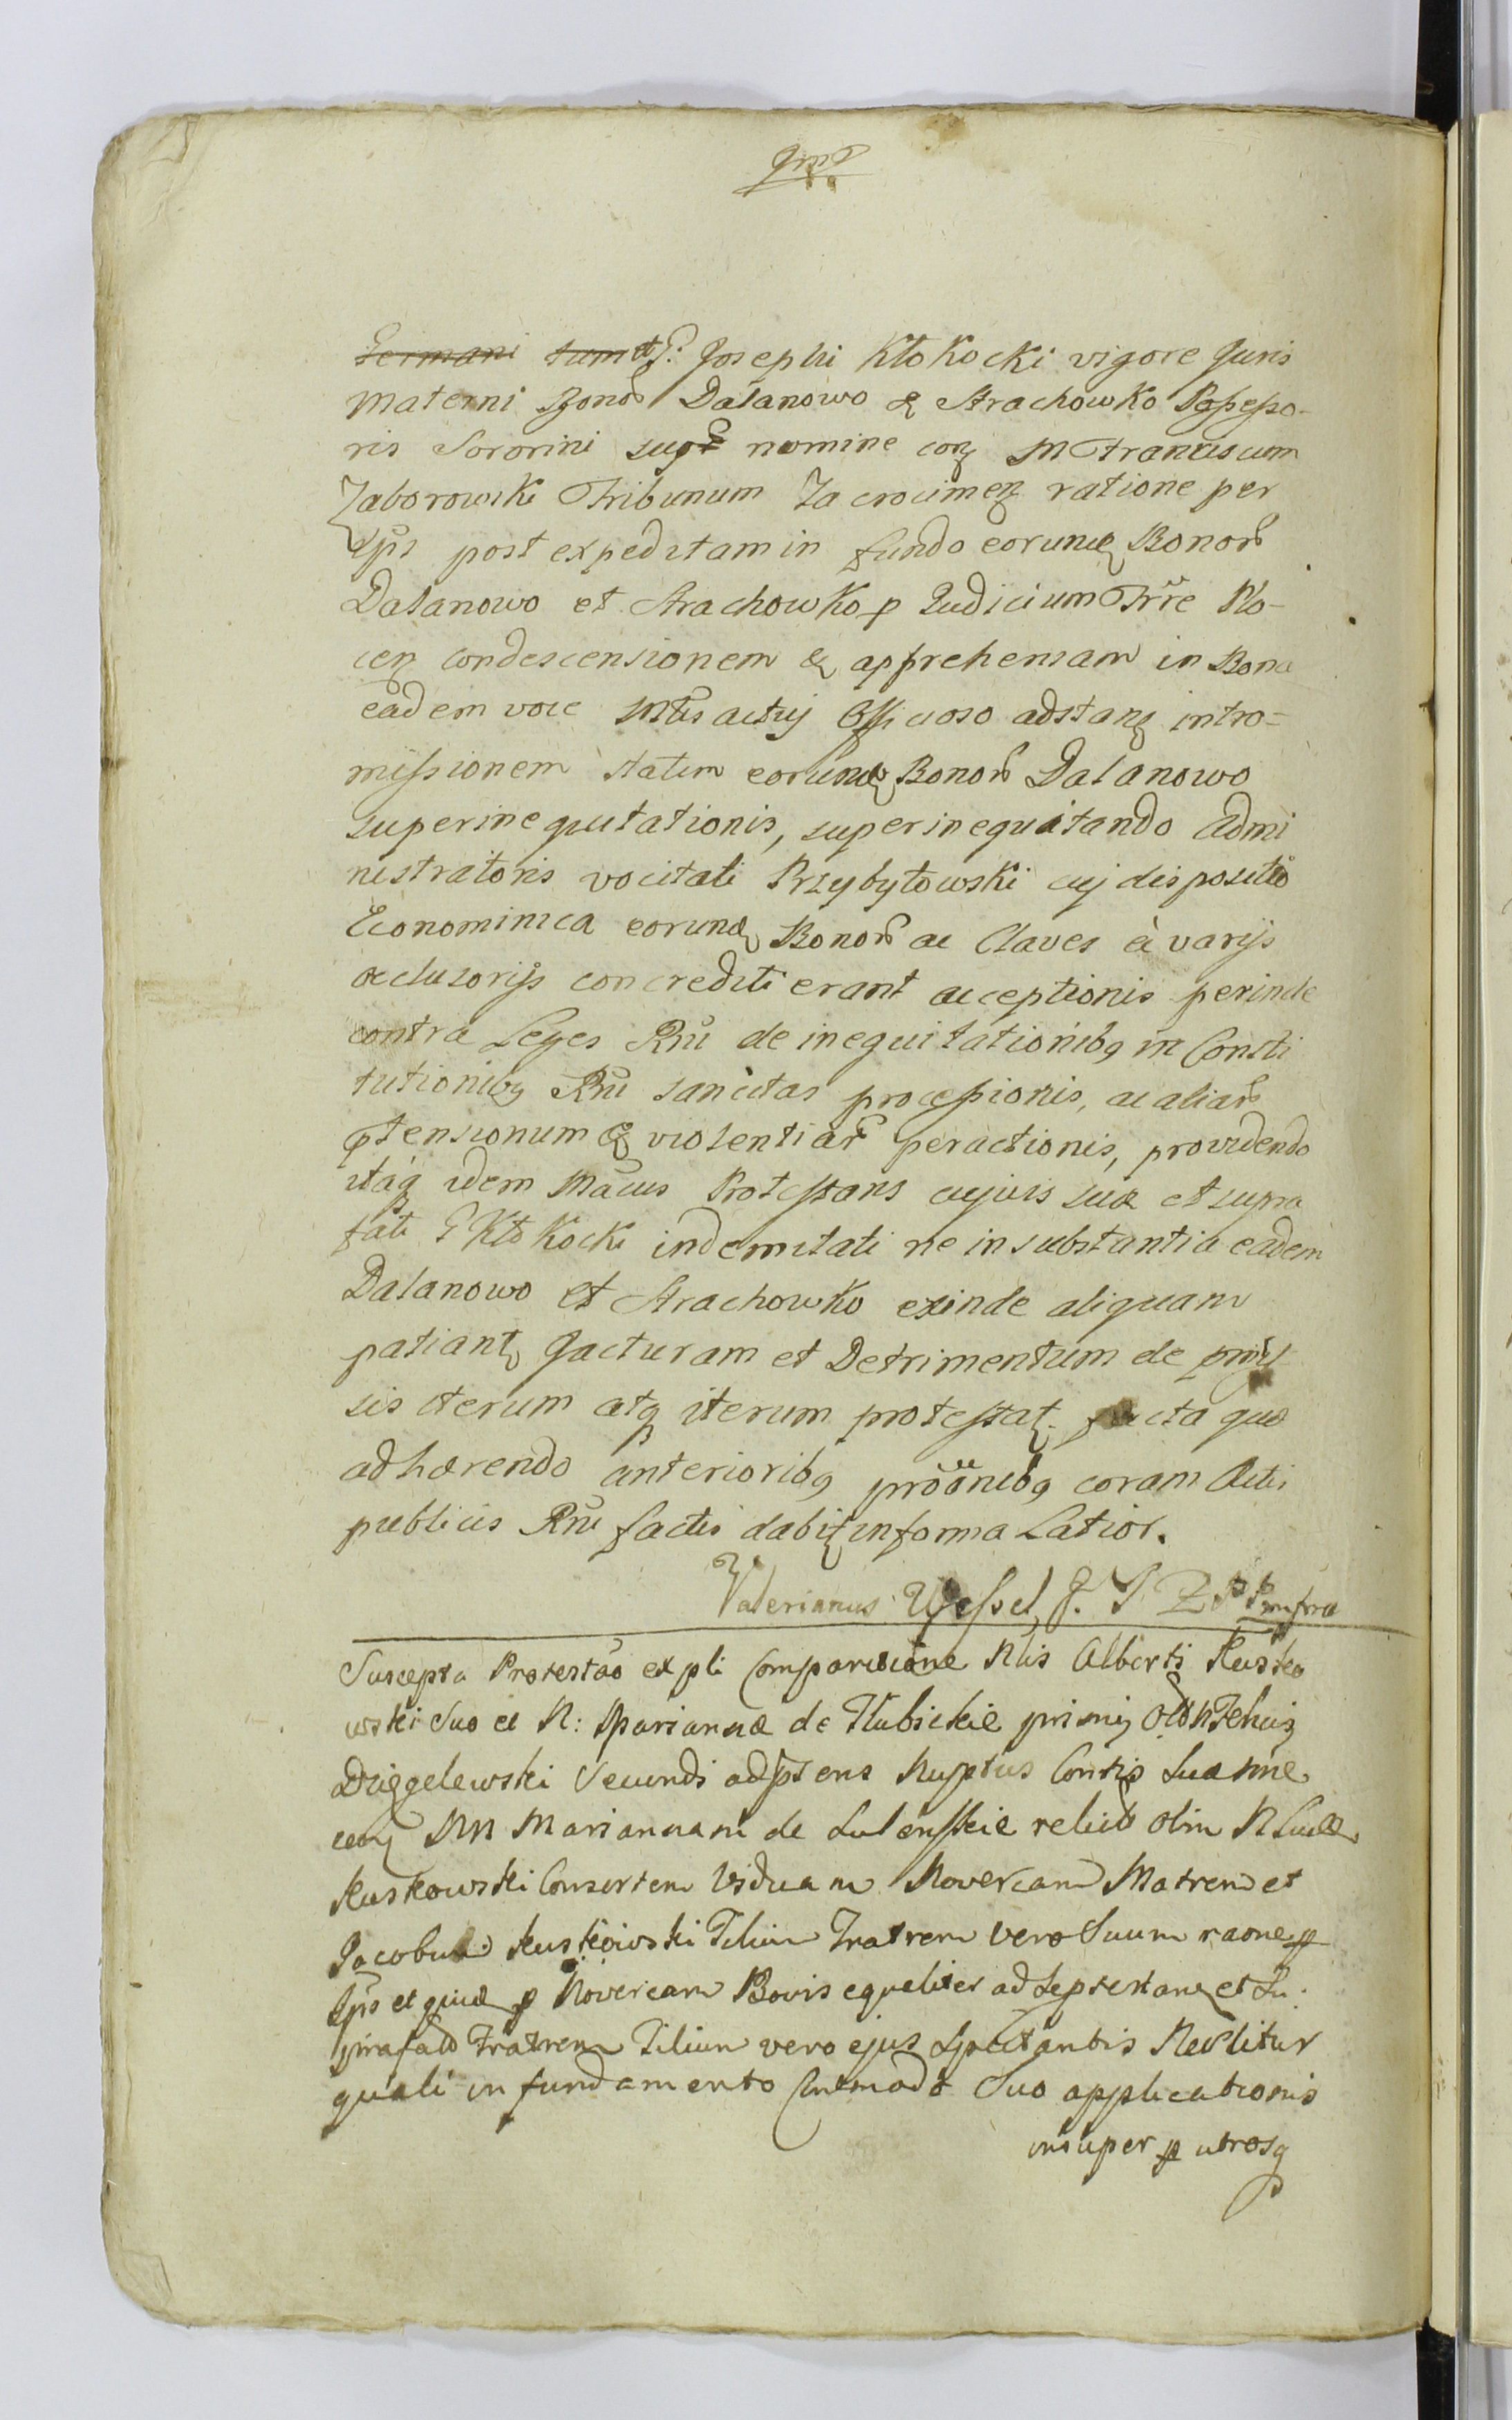 Germani tum et G: Josephi Kłokocki vigore Juris
Materni Bonor Dalanowo & Strachowko Possesso-
ris Sororini suor nomine con M Franciscum
Zaborowski Tribunum Zacrocimen ratione per
Ipš post expeditam in fundo eorund Bonor
Dalanowo et Strachowko p Judicium Trře Plo-
cen Condescensionem & apprehensam in Bona
eadem voce Mtis actuj Officioso adstan intro=
missionem statim eorund Bonor Dalanowo
superinequitationis, superinequitando Admi
nistratoris vocitati Przybyłowski cuj dispositio
Econominica eorund Bonor ac Claves à varijs
occlusorijs concrediti erant acceptionis perinde
contra Leges Rñi de inequitationibq in Consti
tutionibq Rñi sancitas processionis, ac aliar
ptensionum & violentiar peractionis, providendo
itaq idem Mačus Protestans cujvis suæ et supra
fati G Kłokocki indemitati ne in substantia eadem
Dalanowo et Strachowko exinde aliquam
patiant Jacturam et Detrimentum de pmis
sis iterum atq iterum protestat. facta quæ
adhærendo anterioribq prõõnibq coram Actis
publicis Rñi factis dabit in forma Latior.
Valerianus Wessel, J. S Z P P mfra
Suscepta Protestão ex pli Comparicione Nlis Alberti Rusko
wski Suo et N: Mariannæ de Kłubickie primi
Secundi Nuptus Contis Suæ nne
con NN Mariannam de relict olim N Lucæ
Ruskowski Consortem Viduam Novercam Matrem et
Jacobum Ruskowski Filium Fratrem vero Suum raone p
Ipš et quid p Novercam Bovis equaliter ad et Su:
prafatũ Fratrem Filium vero ejus Spectantis
quali in fundamento Suo applicationis
insuper p utrosq